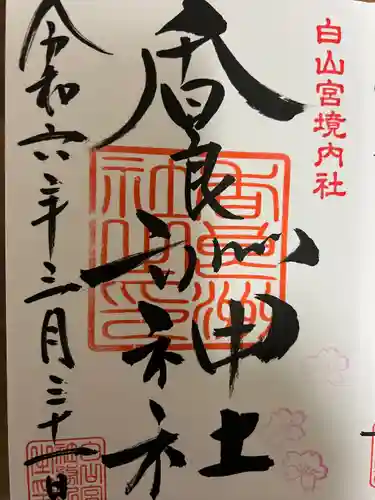 白山宮境内社
香良洲神社
令和六年三月三十一日